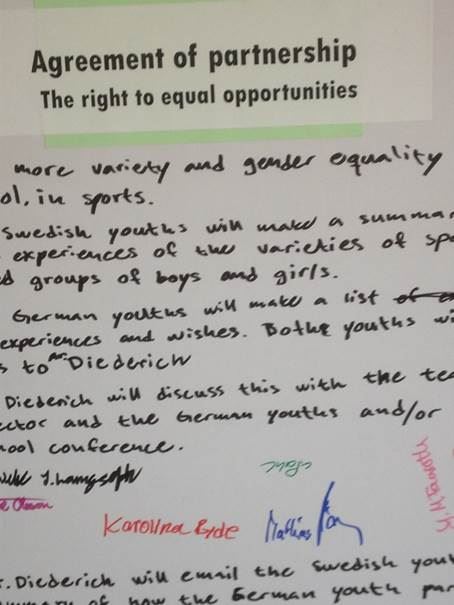 Agreement of partnership
The right to equal opportunities
more variety and gender equality
ol, in sports.
Swedish youths will make a summa
experiences of the varieties of spo
d groups of boys and girls.
German youths will make a list
experiences and wishes. Bothe youths wi
s to Mr Diederich
Diederich will discuss this with the tea
ector and the German youths and/or
ool conference.
Karolina Byde
Mathias
r. Diederich will email the Swedish yout
mmary of how the German youth par